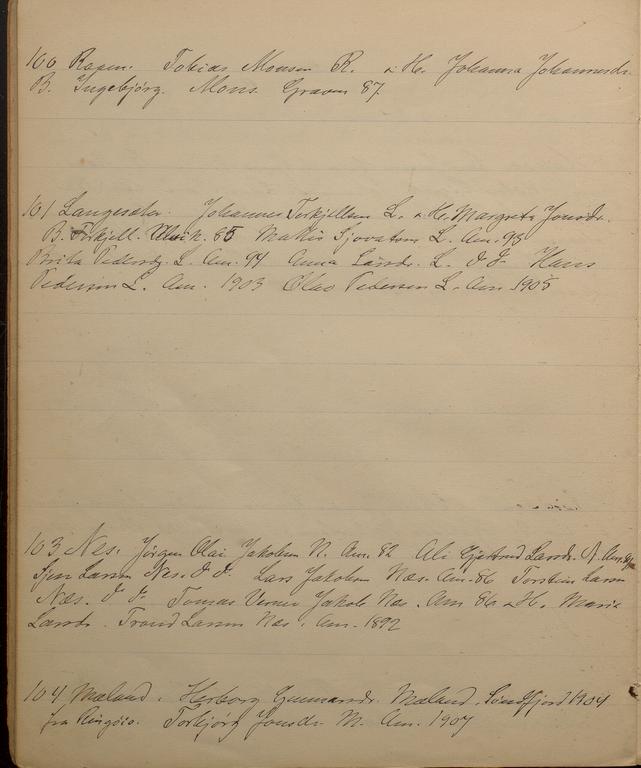 100 Rogen. Tobias Monsen R. & H. Johanna Johannesdr.
B. Ingebjörg. Mons. Graven 87.
101 Langesæter. Johannes Torkjellsen L. & H. Margreta Jonsdr.
B. Torkjell. Ulvik. 85 Mathis Sjovatsen L. Am. 93
Brita Pedersdr. L. Am. 94 Anna Larsdr. L. d. d. Hans
Pedersen L. Am. 1903 Olav Pedersen L. Am. 1905
103 Nes. Jörgen Olai Jakobsen N. Am. 82 Ali Gjertrud Larsdr. N. Am.
Larsen Nes. d. d. Lars Jakobsen Næs. Am. 86 Torstein Larsen
Næs. d. d. Tomas Verner Jakobs Næs. Am 86 & H. Marie
Larsdr. Trond Larsen Næs. Am. 1892
104 Mæland. Herborg Gunnarsdr. Mæland. Söndfjord 1904
fra Ringöio. Torbjörg Jonsdr. M. Am. 1907